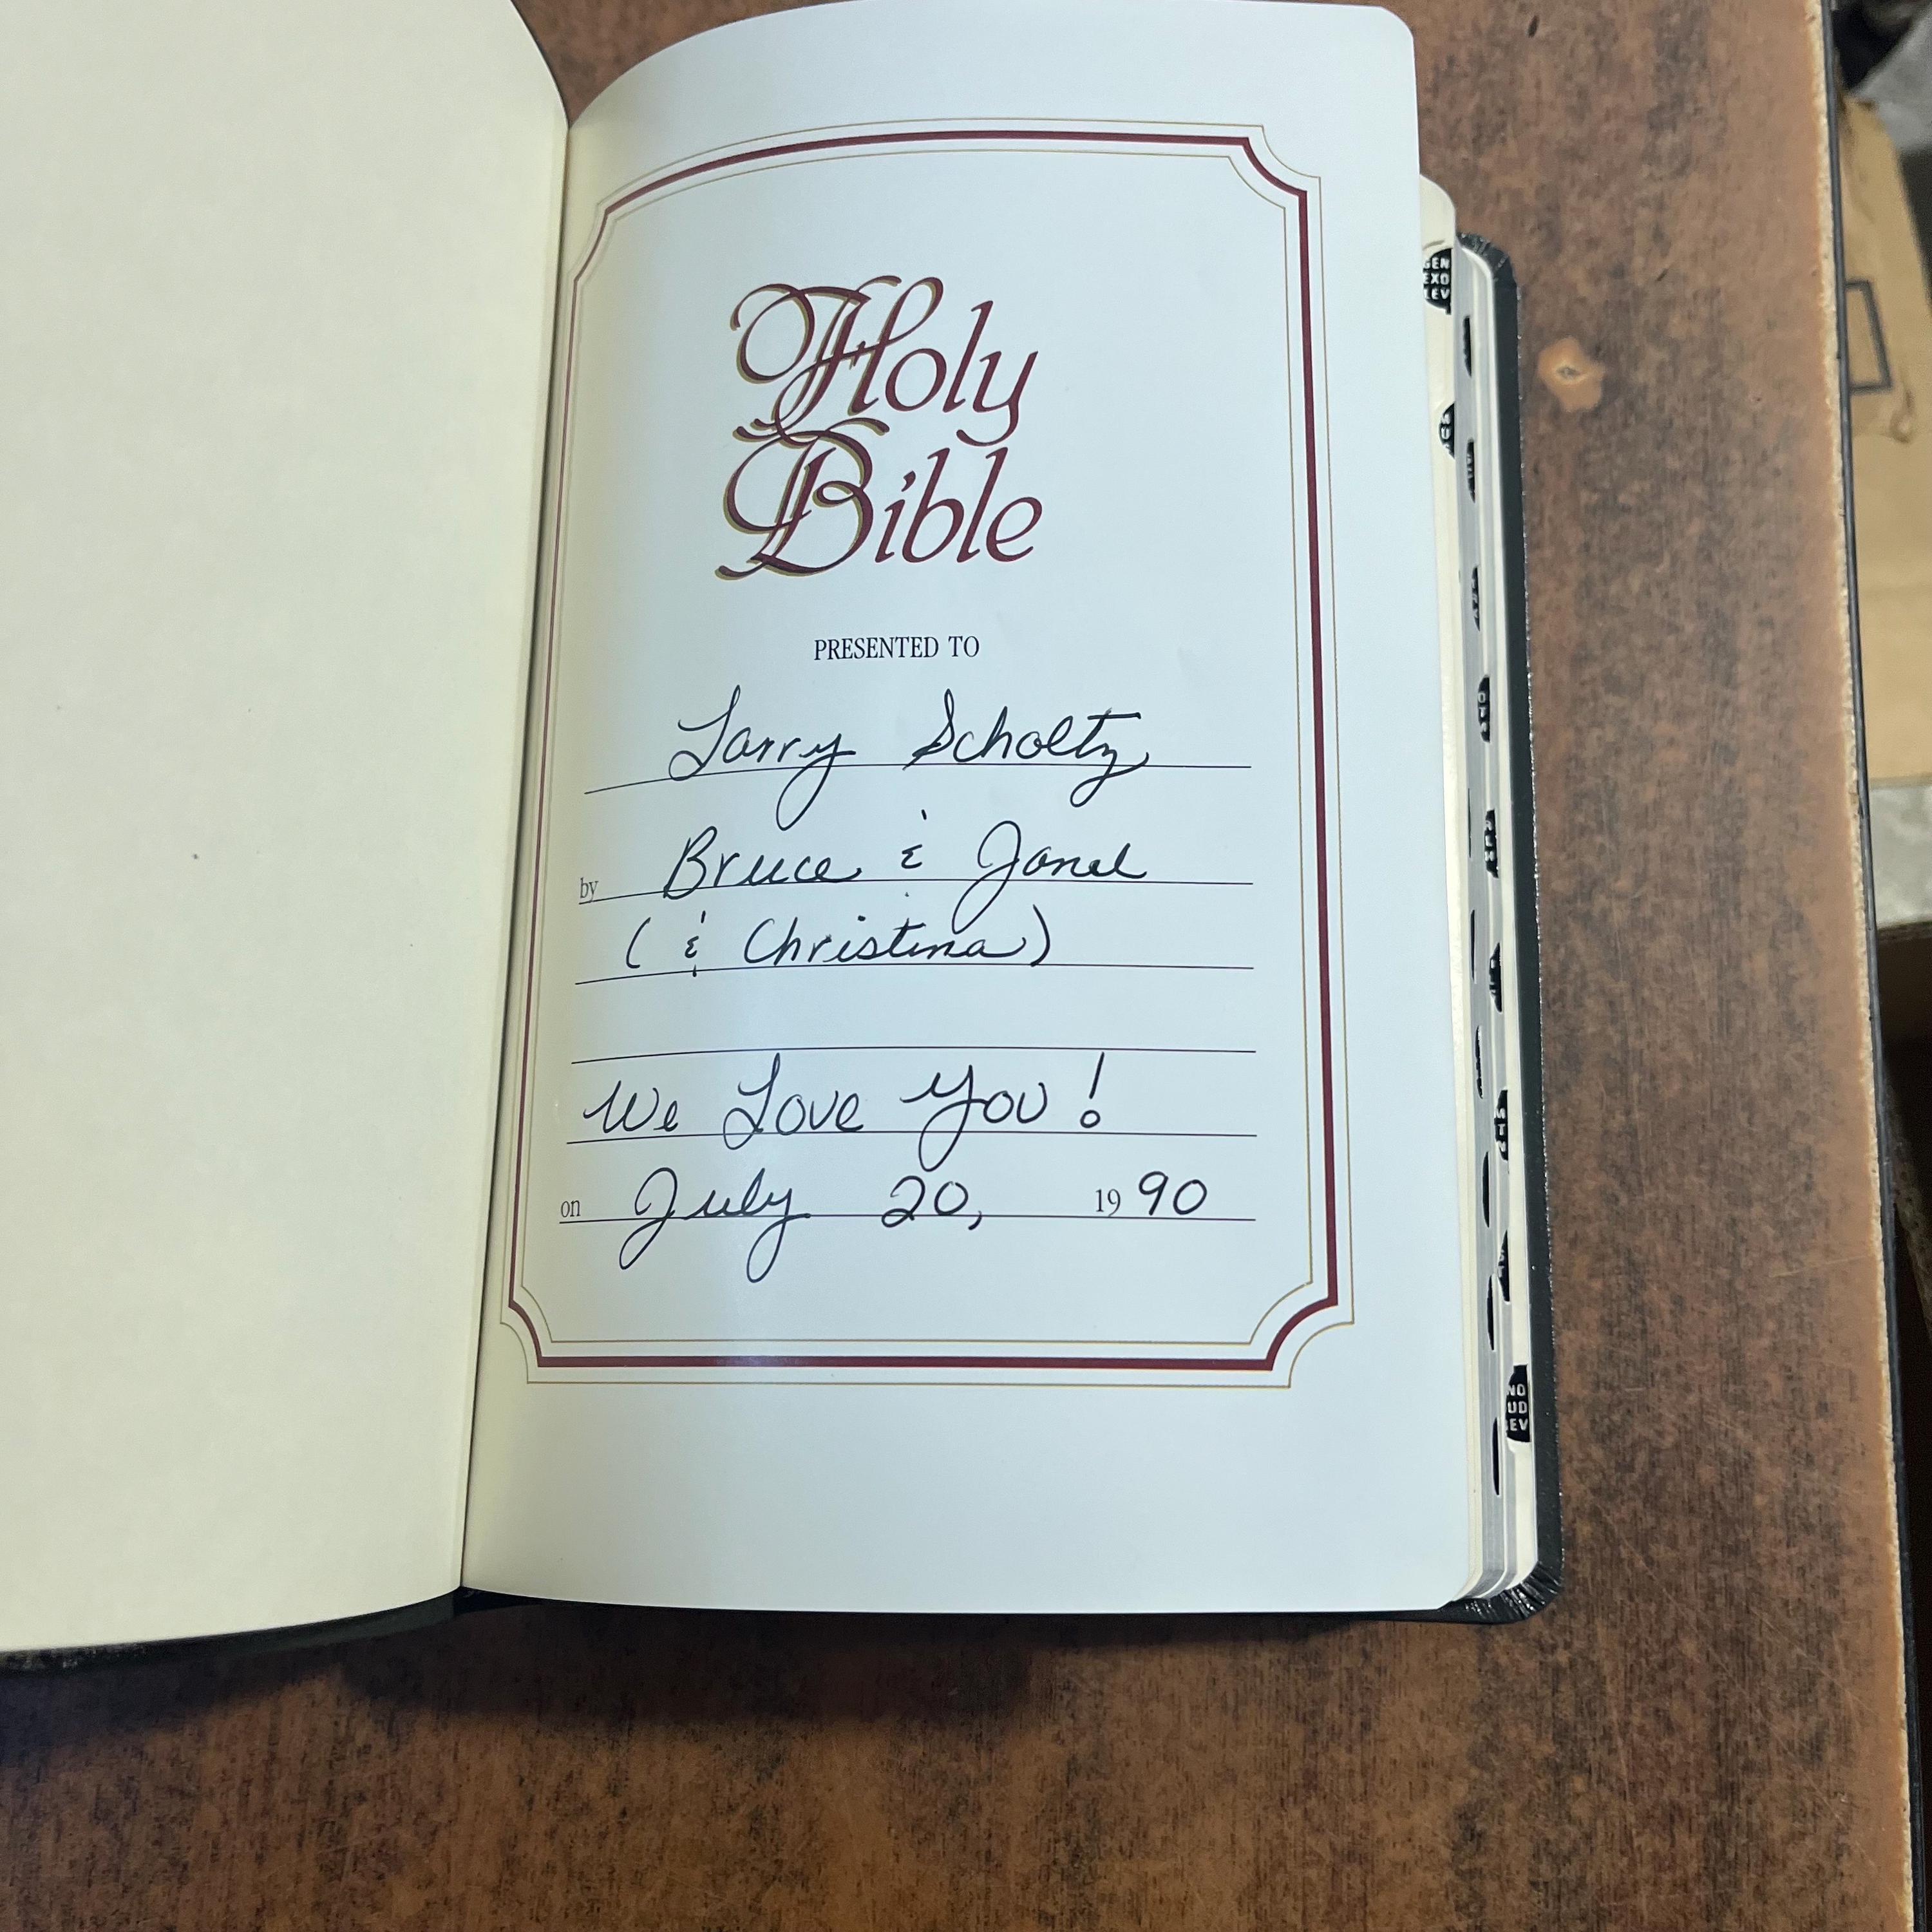 Holy
Bible
PRESENTED TO
Larry Scholtz
by Bruce & Janel
(& Christina)
We Love You!
on July 20, 1990
GEN
EXO
LEV